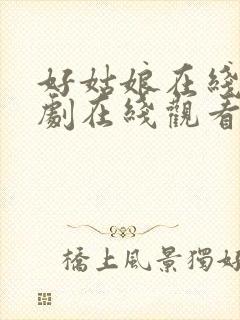 好姑娘在綫
劇在綫觀看
橋上風景獨好